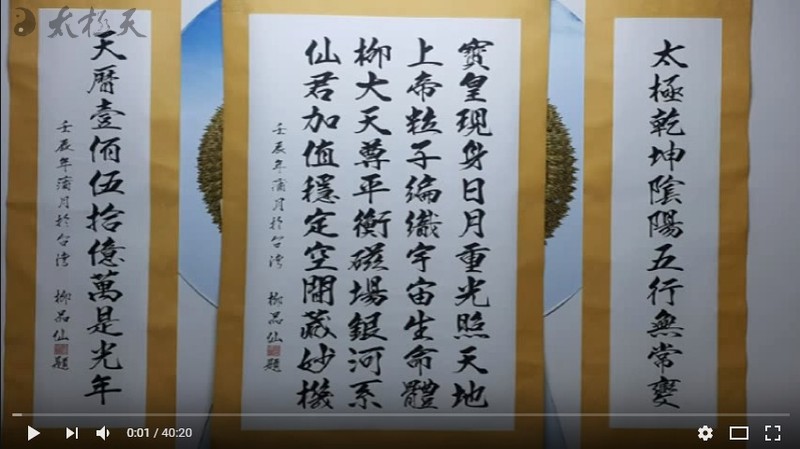 太極天
太極乾坤陰陽五行無常變
寶皇現身日月重光照天地
上帝粒子編織宇宙生命體
柳大天尊平衡磁場銀河系
仙君加值穩定空間藏妙機
壬辰年蒲月於台灣 柳品仙 題
天曆壹佰伍拾億萬是光年
壬辰年蒲月於台灣 柳品仙 題
0:01 / 40:20